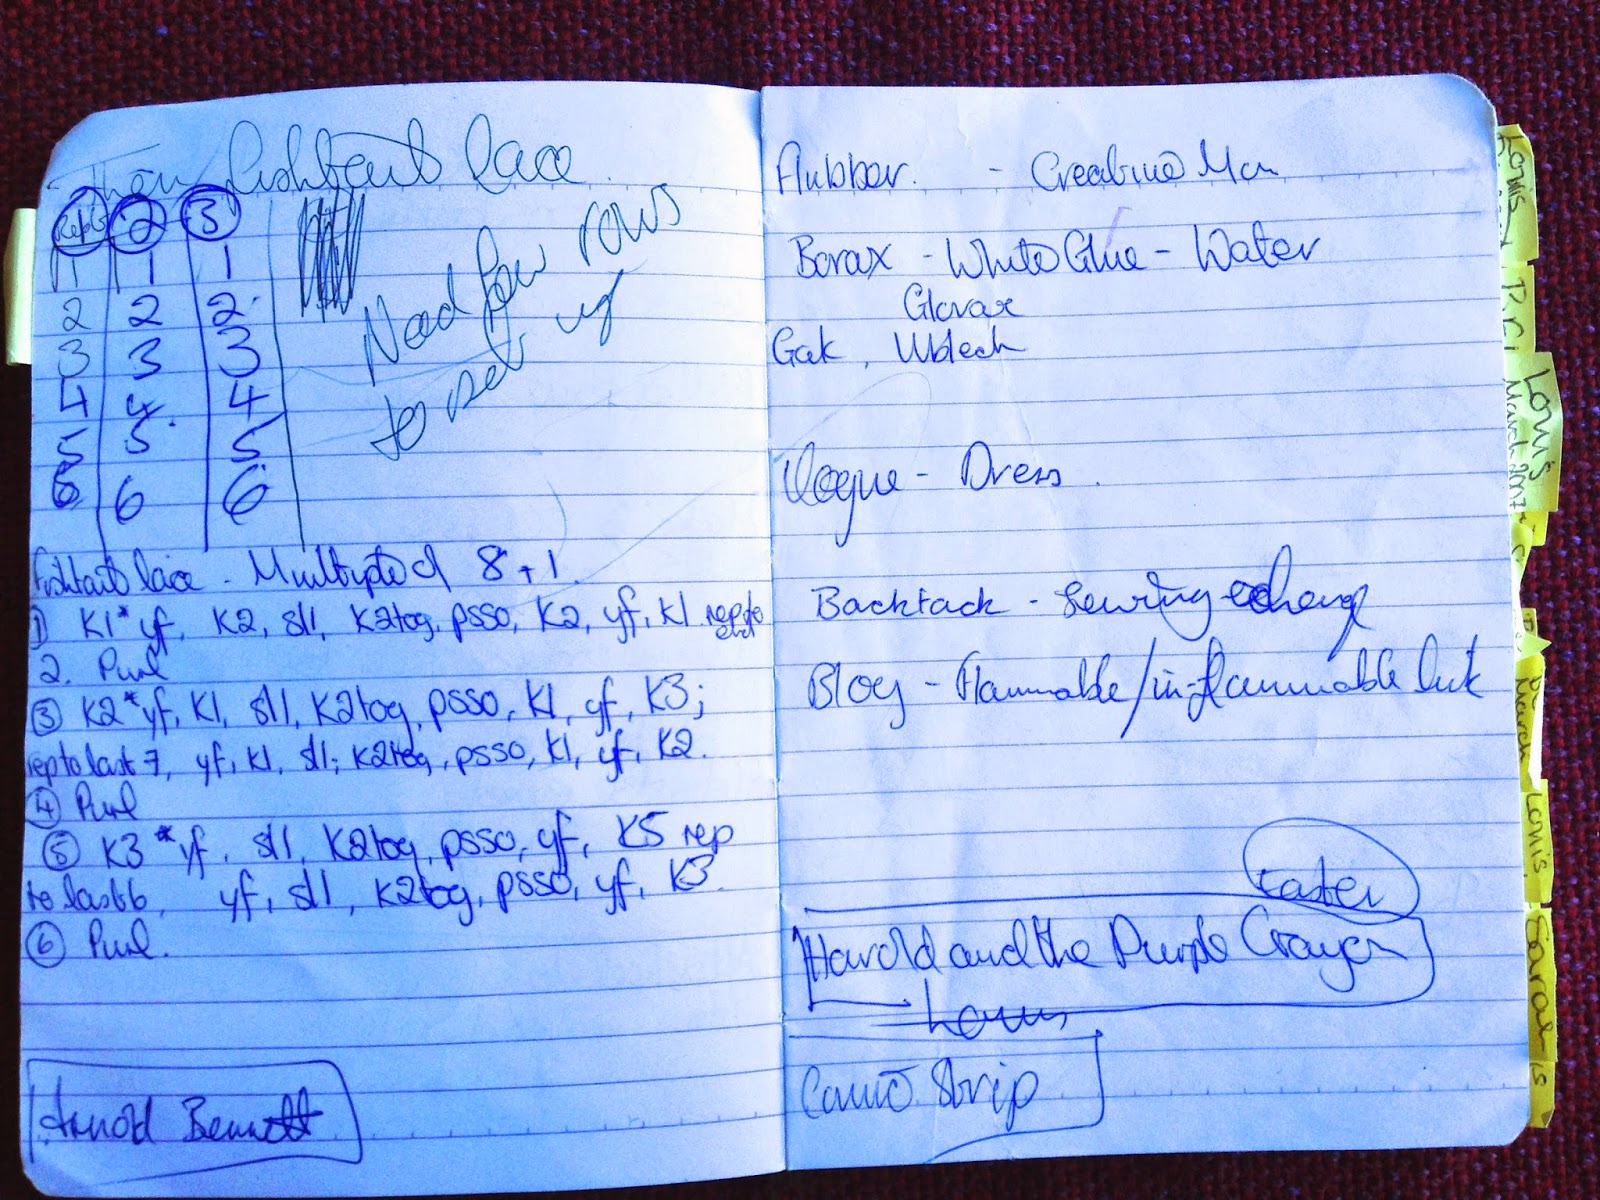 Then fishtail lace.
Rep 1 2 3
1 1 1
2 2 2
3 3 3
4 4 4
5 5 5
6 6 6
Need few rows
to set up
Fishtail lace - Multiple of 8 + 1.
① K1 * yf, K2, sl1, K2tog, psso, K2, yf, K1 rep to
end
2. Purl
③ K2 * yf, K1, sl1, K2tog, psso, K1, yf, K3;
rep to last 7, yf, K1, sl1; K2tog, psso, K1, yf, K2.
④ Purl
⑤ K3 * yf, sl1, K2tog, psso, yf, K5 rep
to last 6, yf, sl1, K2tog, psso, yf, K3.
⑥ Purl.
Arnold Bennett
Flubber. - Creative Mom
Borax - White Glue - Water
Glorax
Gak, Ubleck
Vogue - Dress.
Backtack - Sewing exchange
Blog - Flammable/in-flammable link
Easter
Harold and the Purple Crayon
Louis
Comic Strip
Louis
Louis
March 2007
Louis
Sarah